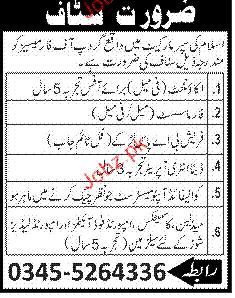 ضرورت سٹاف
اسلام آباد کی سپر مارکیٹ میں واقع گروپ آف فارمیسیز کو
مندرجہ ذیل سٹاف کی ضرورت ہے۔
1. اکاؤنٹنٹ (فی میل) برائے آفس تجربہ 5 سال
2. فارماسسٹ (میل/فی میل)
3. فریش بی اے (فل ٹائم جاب)
4. ڈیٹا انٹری آپریٹر تجربہ 5 سال
5. کوالیفائیڈ آپٹومیٹرسٹ جو نظر چیک کرنے میں ماہر ہو
6. میڈیسن، کاسمیٹکس، امپورٹڈ فوڈ آئیٹمز اور امپورٹڈ لیڈیز
شوز کے لئے سیلز مین (تجربہ 5 سال)
رابطہ 0345-5264336
Jobz.pk